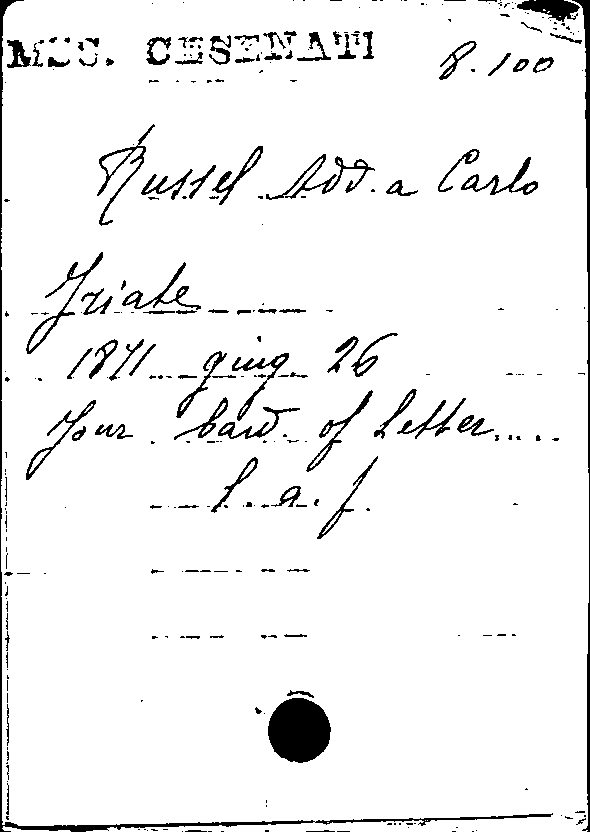 MSS. CESENATI
8.100
Russel Add. a Carlo
Iriate
1871 giug. 26
Your card of letter.....
l. a. f.